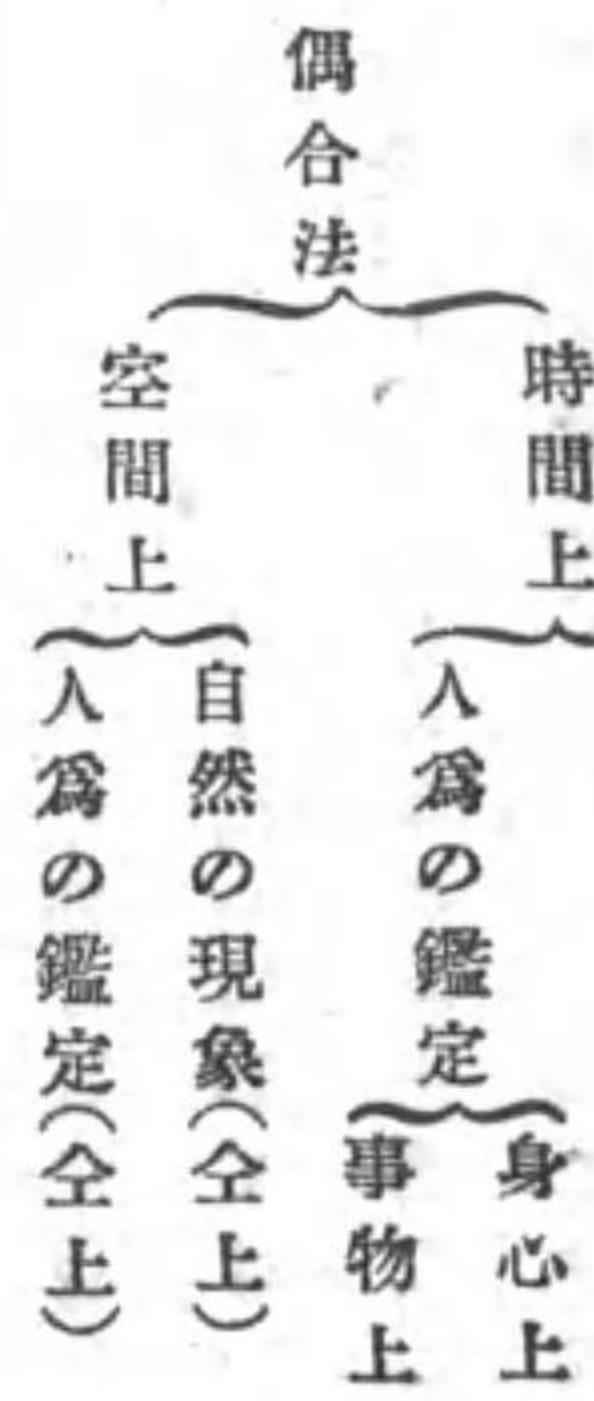 偶合法
時間上
人爲の鑑定
身心上
事物上
空間上
自然の現象(仝上)
人爲の鑑定(仝上)